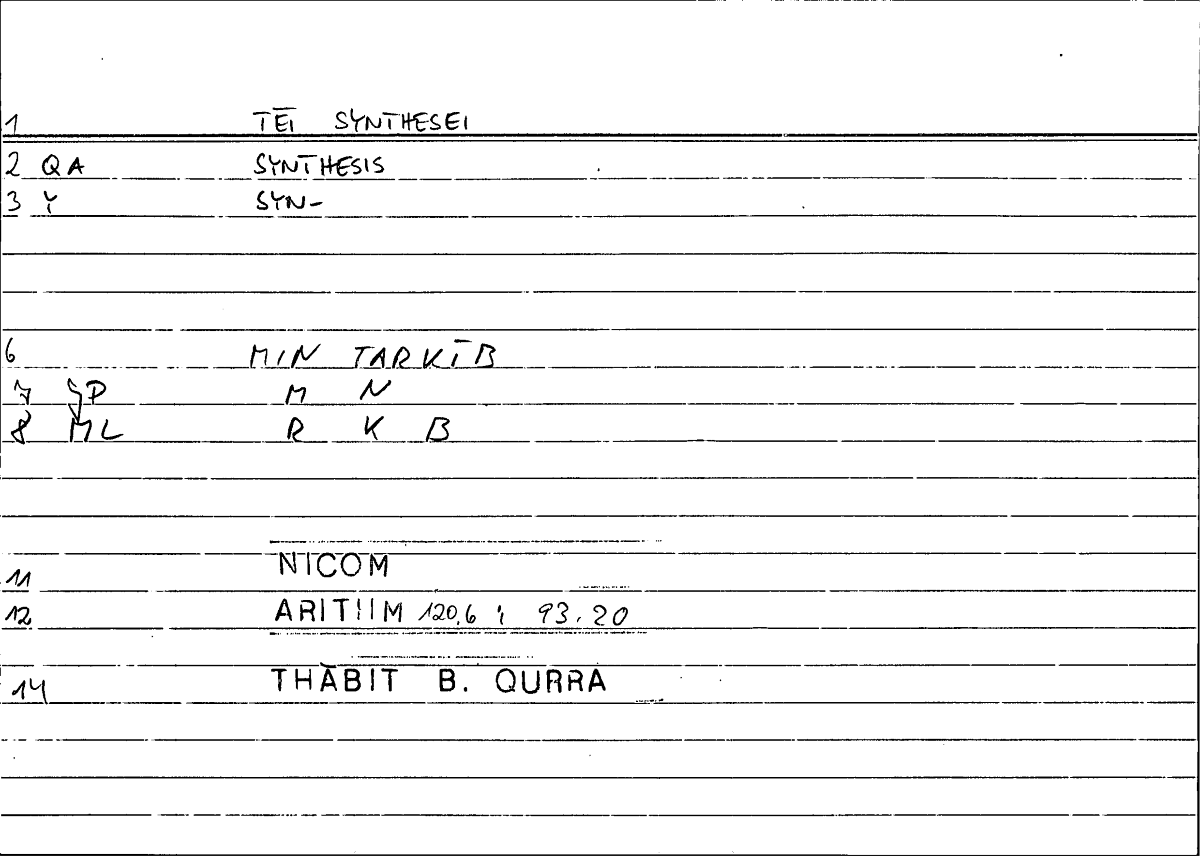 1 TĒI SYNTHESEI
2 QA SYNTHESIS
3 Y SYN-
6 MIN TARKĪB
7 ŞP M N
8 ML R K B
11 NICOM
12 ARITHM 120,6 ; 93.20
14 THĀBIT B. QURRA